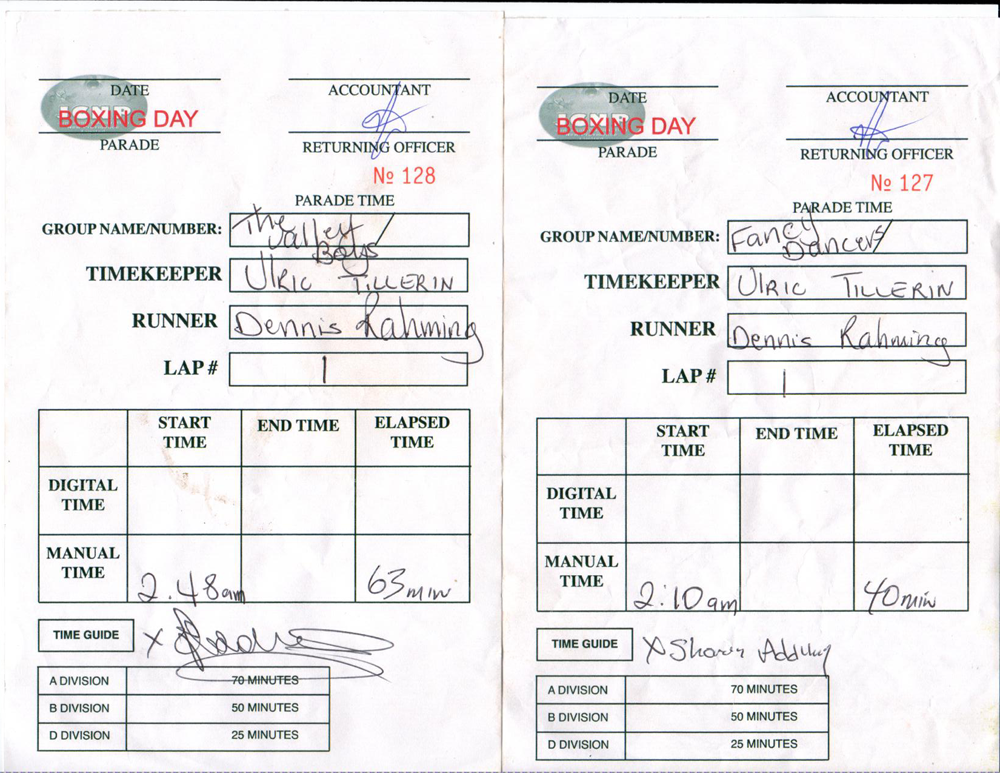 DATE
BOXING DAY
PARADE
ACCOUNTANT
RETURNING OFFICER
№ 128
PARADE TIME
GROUP NAME/NUMBER: The Vallest Boys
TIMEKEEPER ULRIC TILLERIN
RUNNER Dennis Rahming
LAP # 1
START TIME END TIME ELAPSED TIME
DIGITAL TIME
MANUAL TIME 2.48am 63min
TIME GUIDE X
A DIVISION 70 MINUTES
B DIVISION 50 MINUTES
D DIVISION 25 MINUTES
DATE
BOXING DAY
PARADE
ACCOUNTANT
RETURNING OFFICER
№ 127
PARADE TIME
GROUP NAME/NUMBER: Fancy Dancers
TIMEKEEPER ULRIC TILLERIN
RUNNER Dennis Rahming
LAP # 1
START TIME END TIME ELAPSED TIME
DIGITAL TIME
MANUAL TIME 2:10am 40min
TIME GUIDE X
A DIVISION 70 MINUTES
B DIVISION 50 MINUTES
D DIVISION 25 MINUTES